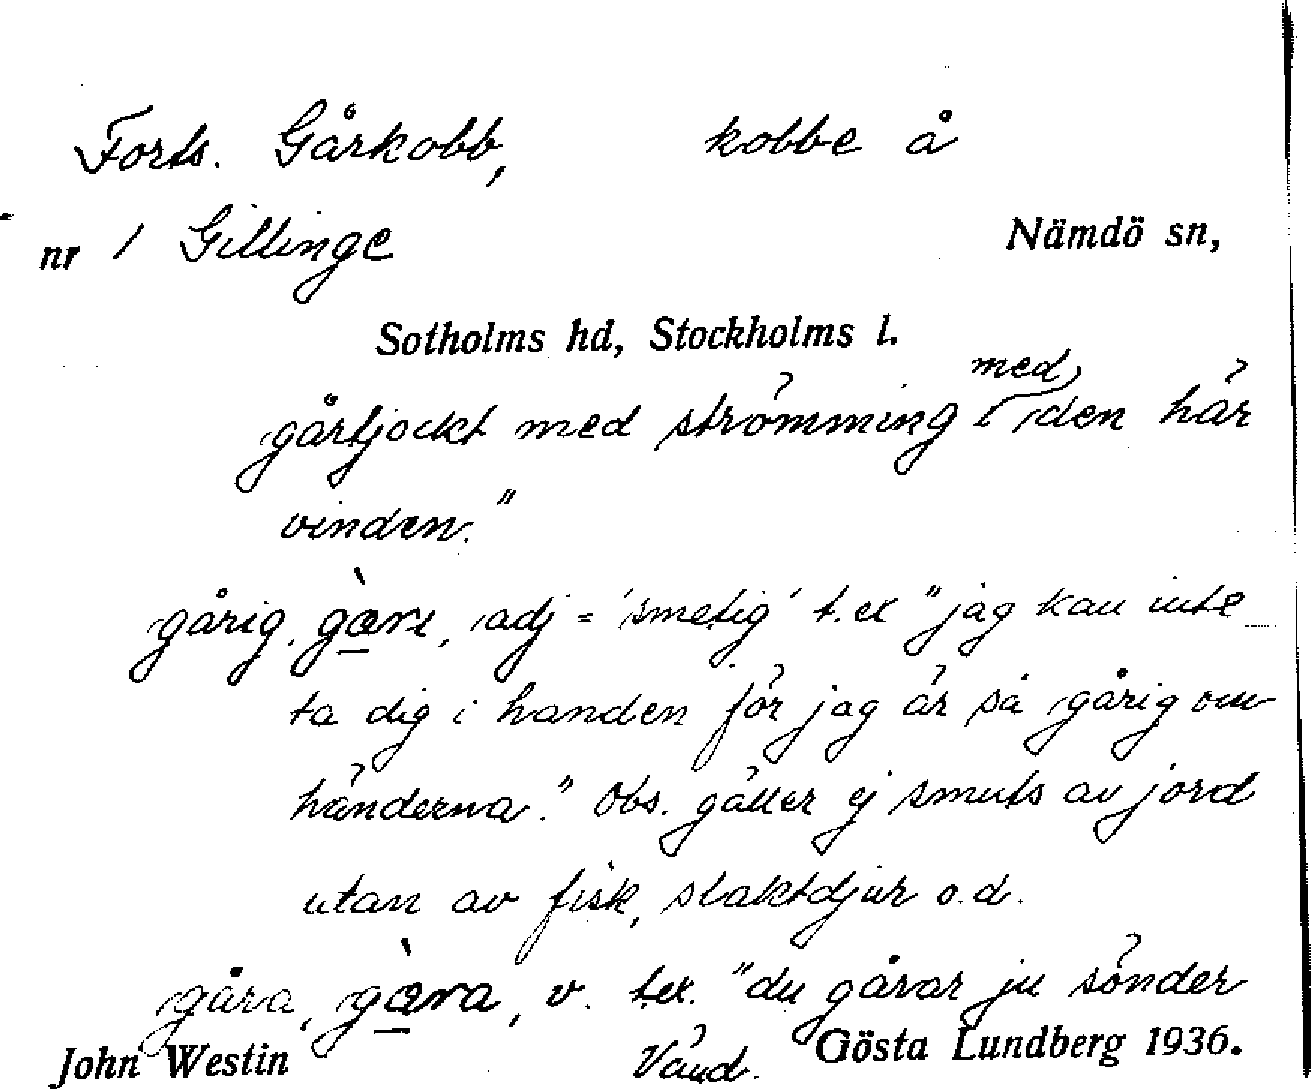 Forts. Gårkobb, kobbe å
nr 1 Gillinge Nämdö sn,
Sotholms hd, Stockholms l.
med
gårtjockt med strömming i den här
vinden."
gårig, gàvı, adj = 'smetig' t.ex "jag kan inte
ta dig i handen för jag är så gårig om
händerna." Obs. gäller ej smuts av jord
utan av fisk, slaktdjur o.d.
gåra, v. t.ex. "du gårar ju sönder
John Westin Vänd. Gösta Lundberg 1936.